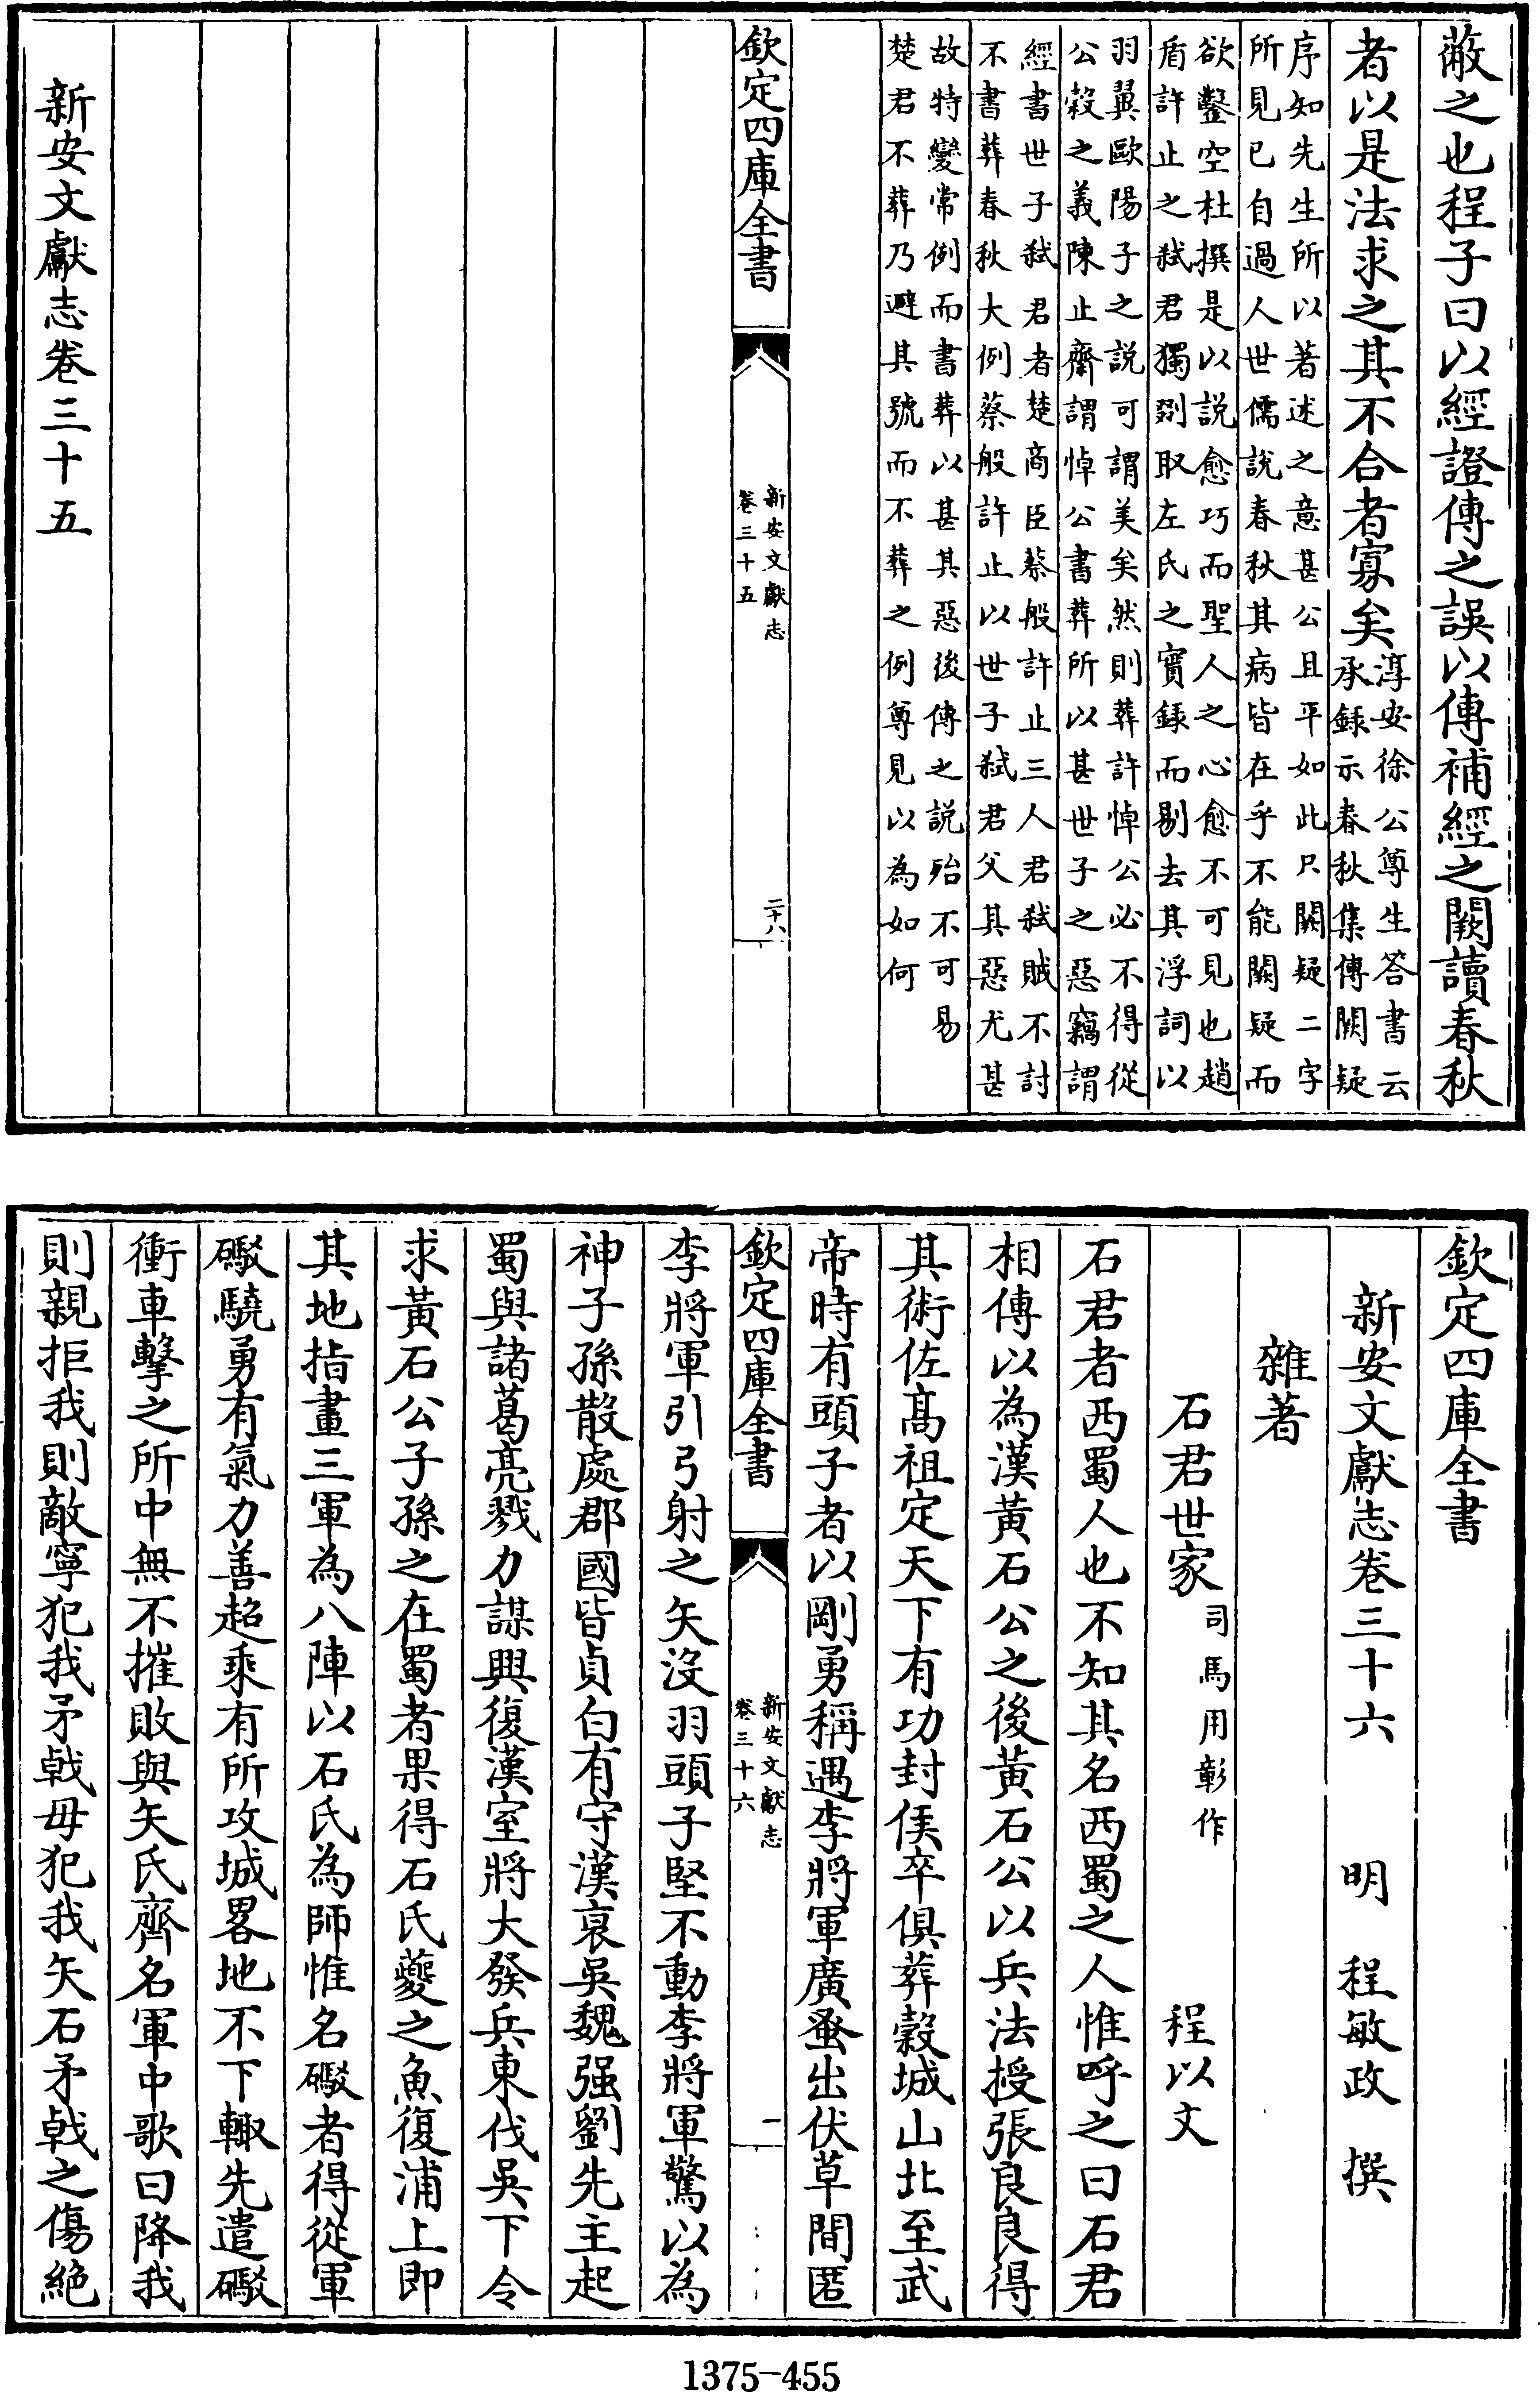 蔽之也程子曰以經證傳之誤以傳補經之闕讀春秋
者以是法求之其不合者寡矣
淳安徐公尊生答書云
承錄示春秋集傳闕疑
序知先生所以著述之意甚公且平如此只闕疑二字
所見已自過人世儒說春秋其病皆在乎不能闕疑而
欲鑿空杜撰是以説愈巧而聖人之心愈不可見也趙
盾許止之弑君獨剟取左氏之實錄而剔去其浮詞以
羽翼歐陽子之說可謂美矣然則葬許悼公必不得從
公穀之義陳止齋謂悼公書葬所以甚世子之惡竊謂
經書世子弑君者楚商臣蔡般許止三人君弑賊不討
不書葬春秋大例蔡般許止以世子弑君父其惡尤甚
故特變常例而書葬以甚其惡後傳之説殆不可易
楚君不葬乃避其號而不葬之例尊見以為如何
欽定四庫全書
新安文獻志
卷三十五
二十八
新安文獻志卷三十五
欽定四庫全書
新安文獻志卷三十六 明 程敏政 撰
雜著
石君世家 司馬用彰作 程以文
石君者西蜀人也不知其名西蜀之人惟呼之曰石君
相傳以為漢黃石公之後黃石公以兵法授張良良得
其術佐高祖定天下有功封侯卒俱葬穀城山北至武
帝時有頭子者以剛勇稱遇李將軍廣蚤出伏草間匿
欽定四庫全書
新安文獻志
卷三十六
一
李將軍引弓射之矢沒羽頭子堅不動李將軍驚以為
神子孫散處郡國皆貞白有守漢衰吳魏强劉先主起
蜀與諸葛亮戮力謀興復漢室將大發兵東伐吳下令
求黃石公子孫之在蜀者果得石氏夔之魚復浦上即
其地指畫三軍為八陣以石氏為師惟名礟者得從軍
礟驍勇有氣力善超乘有所攻城畧地不下輙先遣礟
衝車擊之所中無不摧敗與矢氏齊名軍中歌曰降我
則親拒我則敵寧犯我矛戟毋犯我矢石矛戟之傷絕
1375-455